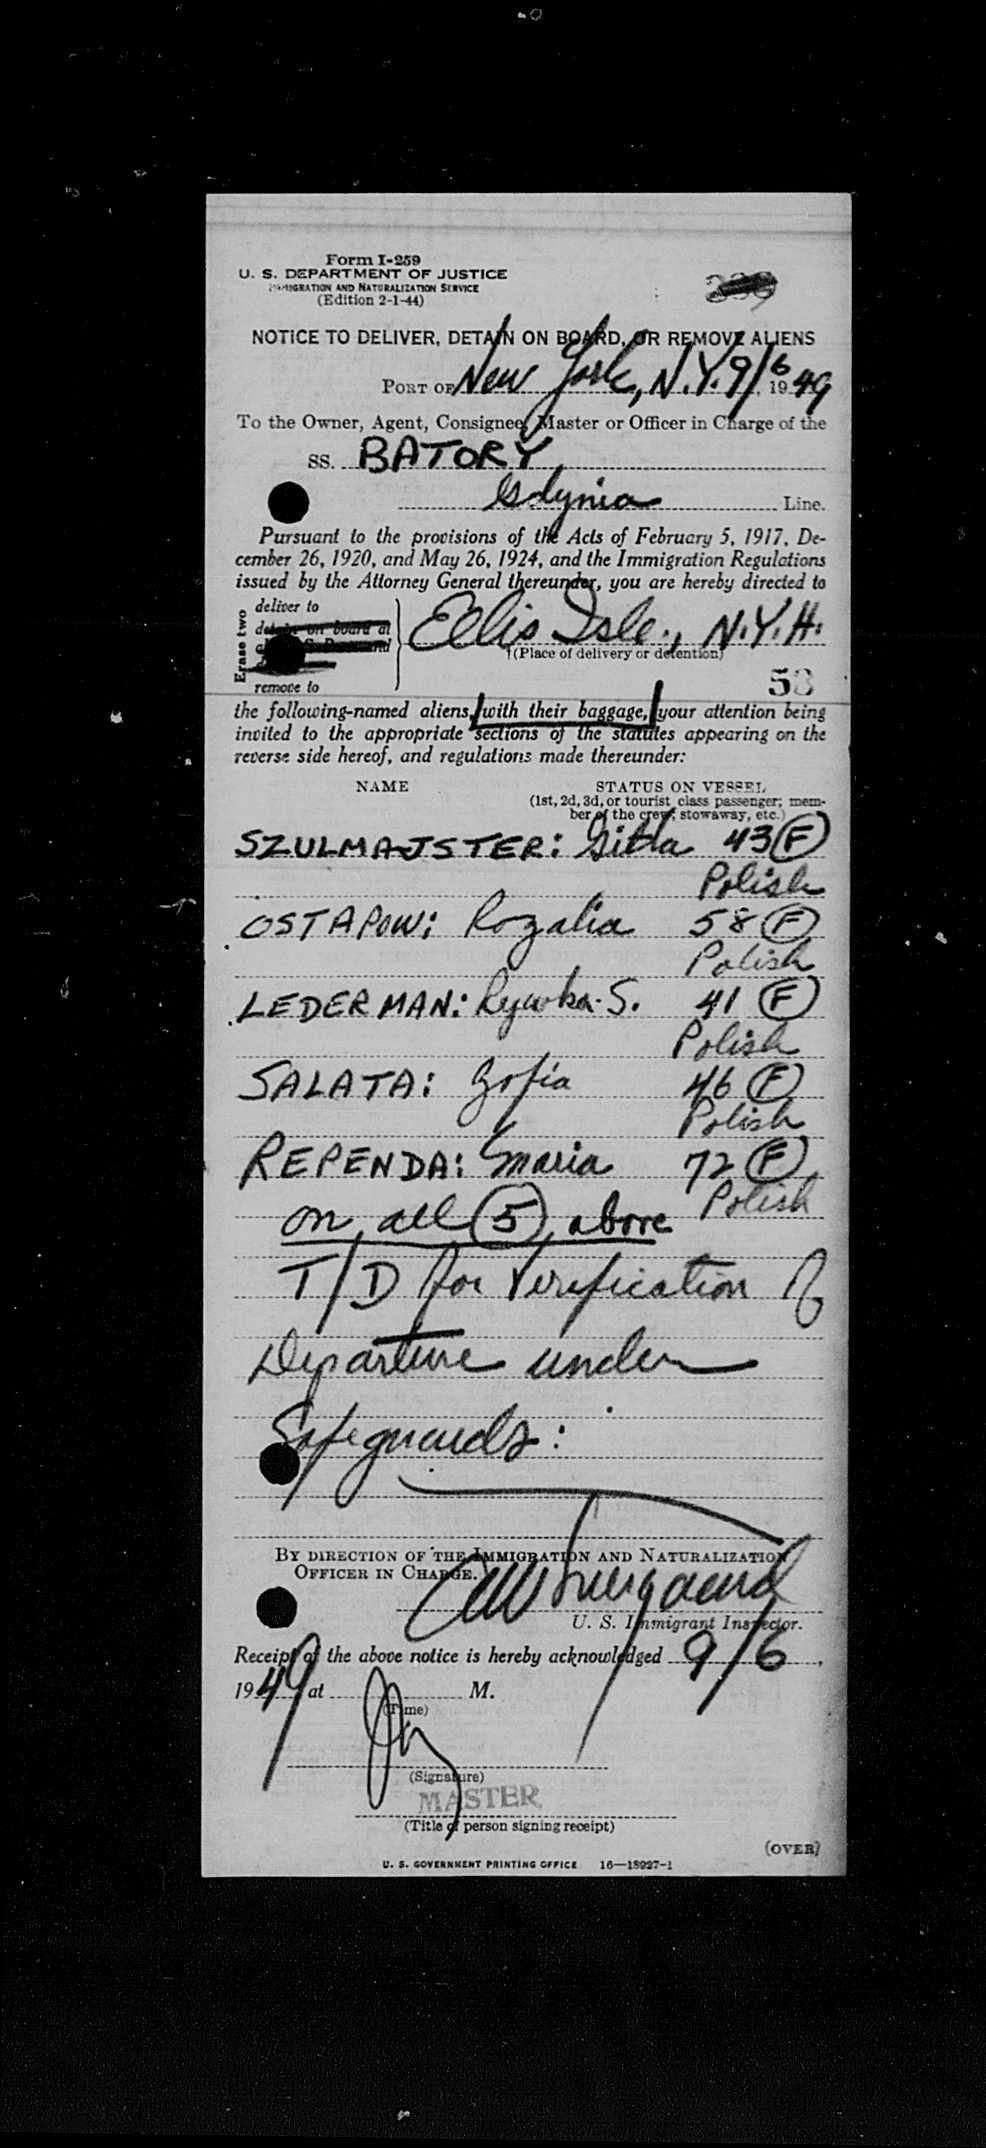 Form I-259
U. S. DEPARTMENT OF JUSTICE
IMMIGRATION AND NATURALIZATION SERVICE
(Edition 2-1-44)
NOTICE TO DELIVER, DETAIN ON BOARD, OR REMOVE ALIENS
PORT OF New York, N.Y. 9/6, 1949
To the Owner, Agent, Consignee, Master or Officer in Charge of the
SS. BATORY,
Gdynia Line.
Pursuant to the provisions of the Acts of February 5, 1917, De-
cember 26, 1920, and May 26, 1924, and the Immigration Regulations
issued by the Attorney General thereunder, you are hereby directed to
Erase two
deliver to
detain on board at
remove to
Ellis Isle., N.Y.H.
(Place of delivery or detention)
53
the following-named aliens, with their baggage, your attention being
invited to the appropriate sections of the statutes appearing on the
reverse side hereof, and regulations made thereunder:
NAME STATUS ON VESSEL
(1st, 2d, 3d, or tourist class passenger; mem-
ber of the crew; stowaway, etc.)
SZULMAJSTER: Gitla 43 F
Polish
OSTAPOW: Rozalia 58 F
Polish
LEDERMAN: Rywka S. 41 F
Polish
SALATA: Zofia 46 F
Polish
REPENDA: Maria 72 F
Polish
on all 5 above
T/D for Verification of
Departure under
Safeguards:
BY DIRECTION OF THE IMMIGRATION AND NATURALIZATION
OFFICER IN CHARGE.
U. S. Immigrant Inspector.
Receipt of the above notice is hereby acknowledged 9/6,
1949 at M.
(Time)
(Signature)
MASTER
(Title of person signing receipt)
(OVER)
U. S. GOVERNMENT PRINTING OFFICE 16—18927-1